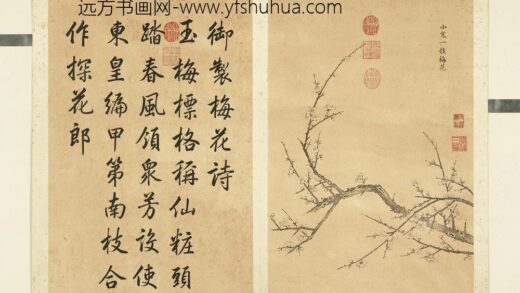 远方书画网-www.yfshuhua.com
御製梅花詩
玉梅標格稱仙粧頭
踏春風領衆芳設使
東皇編甲第南枝合
作探花郎
小寒一候梅花